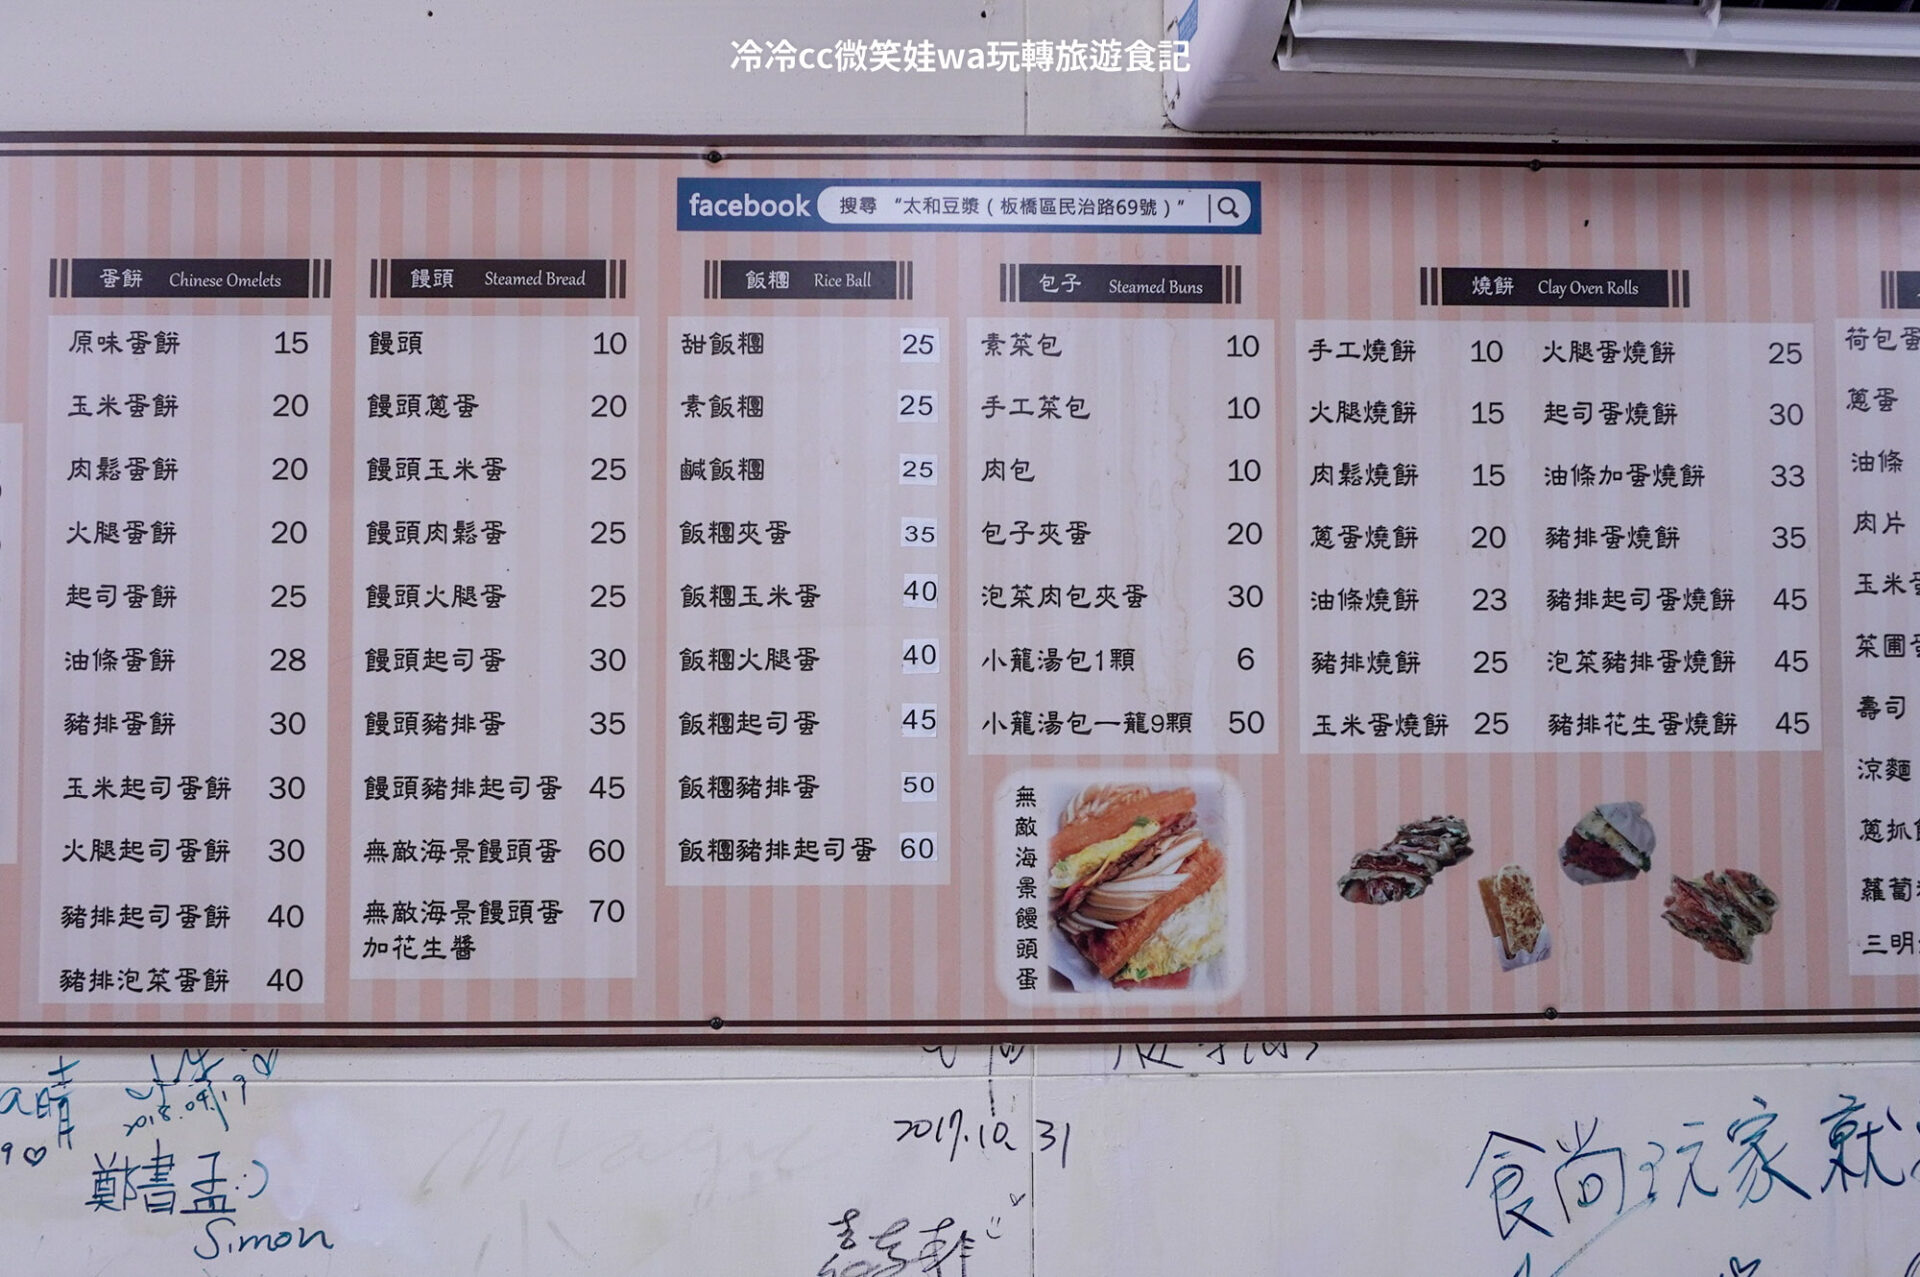 冷冷cc微笑娃wa玩轉旅遊食記
facebook 搜尋 “太和豆漿（板橋區民治路69號）”
蛋餅 Chinese Omelets
原味蛋餅 15
玉米蛋餅 20
肉鬆蛋餅 20
火腿蛋餅 20
起司蛋餅 25
油條蛋餅 28
豬排蛋餅 30
玉米起司蛋餅 30
火腿起司蛋餅 30
豬排起司蛋餅 40
豬排泡菜蛋餅 40
饅頭 Steamed Bread
饅頭 10
饅頭蔥蛋 20
饅頭玉米蛋 25
饅頭肉鬆蛋 25
饅頭火腿蛋 25
饅頭起司蛋 30
饅頭豬排蛋 35
饅頭豬排起司蛋 45
無敵海景饅頭蛋 60
無敵海景饅頭蛋 70
加花生醬
飯糰 Rice Ball
甜飯糰 25
素飯糰 25
鹹飯糰 25
飯糰夾蛋 35
飯糰玉米蛋 40
飯糰火腿蛋 40
飯糰起司蛋 45
飯糰豬排蛋 50
飯糰豬排起司蛋 60
包子 Steamed Buns
素菜包 10
手工菜包 10
肉包 10
包子夾蛋 20
泡菜肉包夾蛋 30
小籠湯包1顆 6
小籠湯包一籠9顆 50
無敵海景饅頭蛋
燒餅 Clay Oven Rolls
手工燒餅 10
火腿燒餅 15
肉鬆燒餅 15
蔥蛋燒餅 20
油條燒餅 23
豬排燒餅 25
玉米蛋燒餅 25
火腿蛋燒餅 25
起司蛋燒餅 30
油條加蛋燒餅 33
豬排蛋燒餅 35
豬排起司蛋燒餅 45
泡菜豬排蛋燒餅 45
豬排花生蛋燒餅 45
荷包蛋
蔥蛋
油條
肉片
玉米蛋
菜圃蛋
壽司
涼麵
蔥抓餅
蘿蔔
三明
晴
鄭書孟:)
Simon
2017.10.31
食尚玩家就